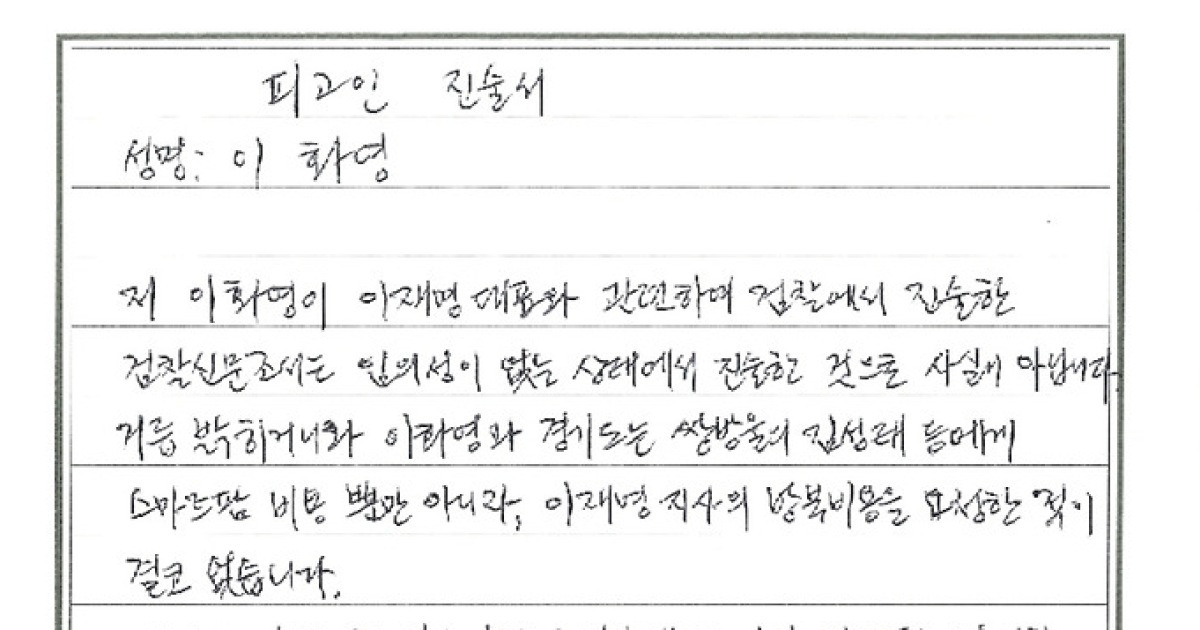 피고인 진술서
성명: 이 화영
저 이화영이 이재명 대표와 관련하여 검찰에서 진술한
검찰신문조서는 임의성이 없는 상태에서 진술한 것으로 사실이 아닙니다.
거듭 밝히거니와 이화영과 경기도는 쌍방울의 김성태 등에게
스마트팜 비용 뿐만 아니라, 이재명 지사의 방북비용을 요청한 적이
결코 없습니다.